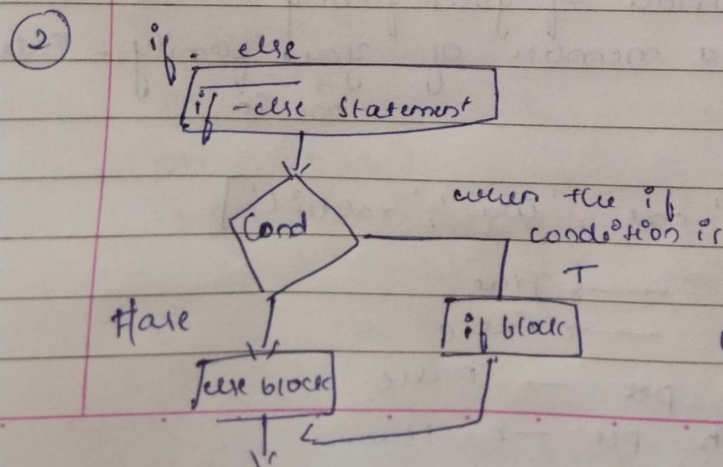 2
if else
if-else statement
Cond
when the if
condition is
T
Flase
if block
else block